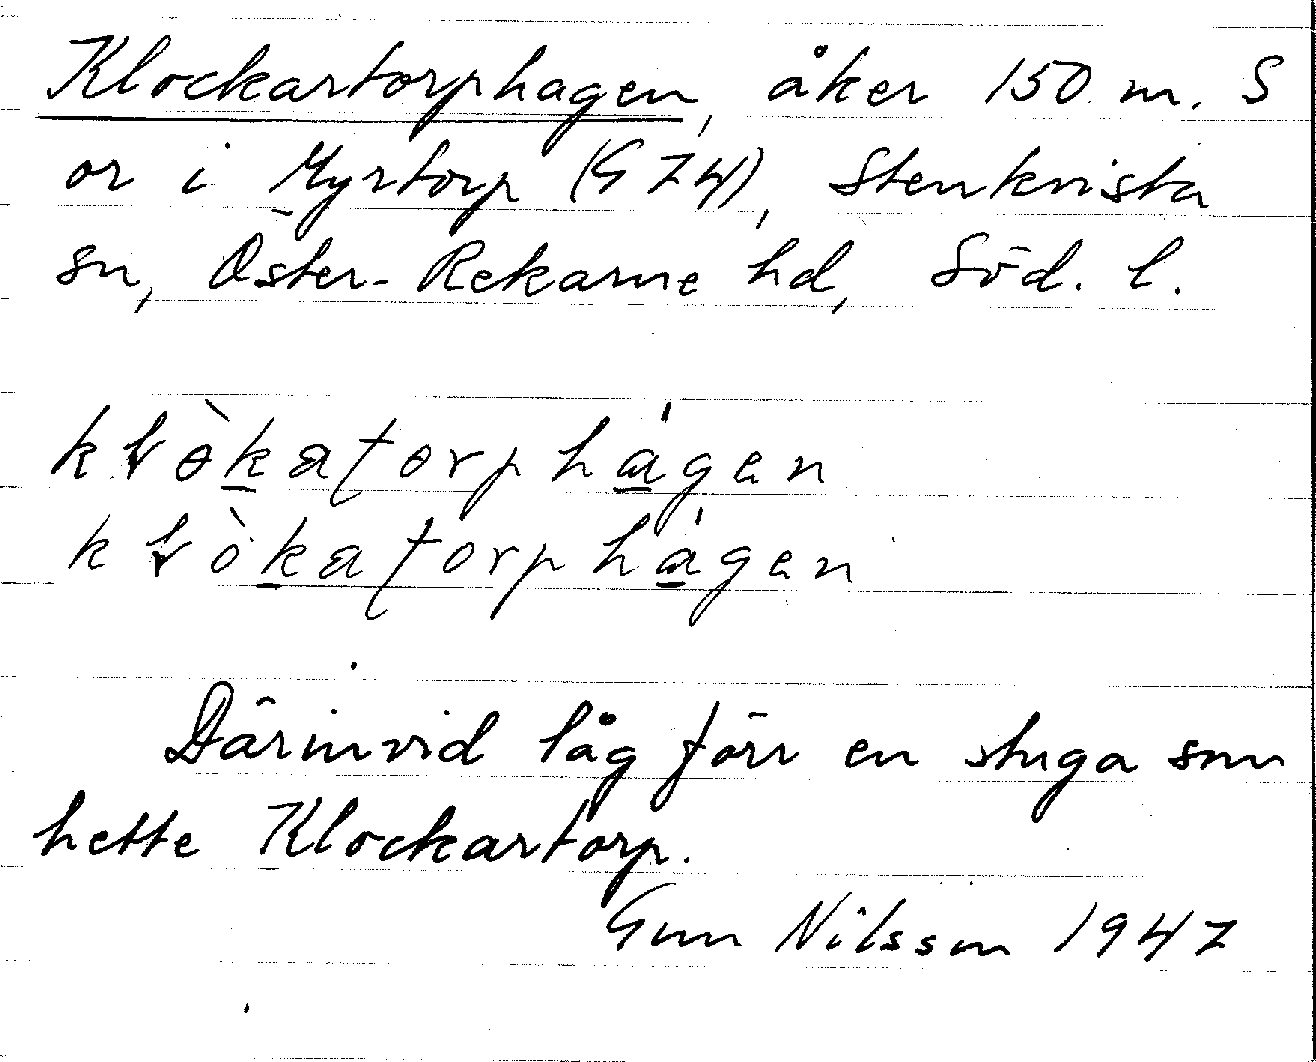 Klockartorphagen, åker 150 m. S
or i Myrtorp (G 74), Stenkvista
sn, Öster-Rekarne hd, Söd. l.
Därinvid låg förr en stuga som
hette Klockartorp.
Gun Nilsson 1947